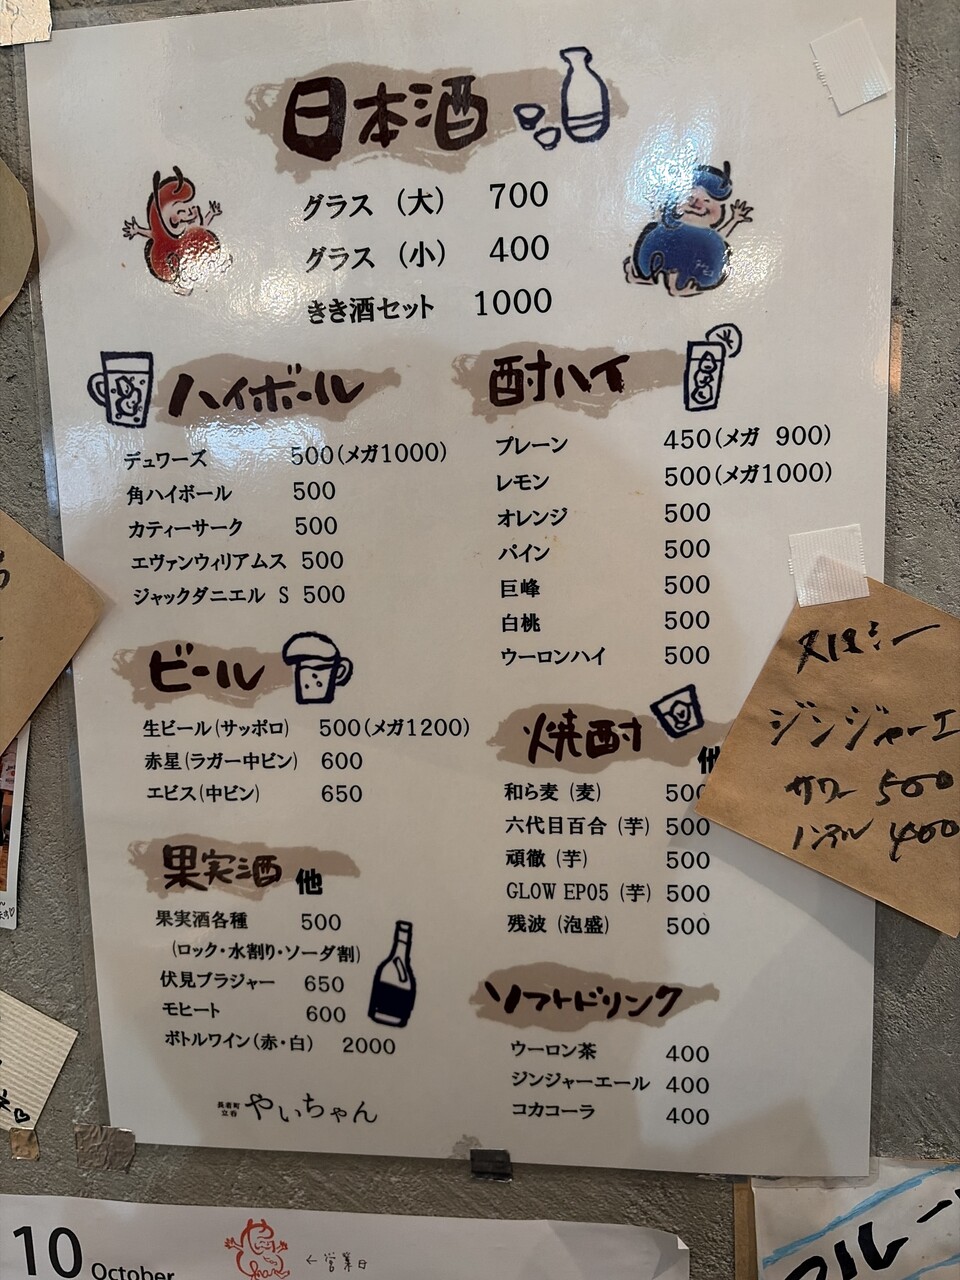 日本酒
グラス（大） 700
グラス（小） 400
きき酒セット 1000
ハイボール
デュワーズ 500(メガ1000)
角ハイボール 500
カティーサーク 500
エヴァンウィリアムス 500
ジャックダニエル S 500
ビール
生ビール(サッポロ) 500(メガ1200)
赤星(ラガー中ビン) 600
エビス(中ビン) 650
果実酒 他
果実酒各種 500
(ロック・水割り・ソーダ割)
伏見ブラジャー 650
モヒート 600
ボトルワイン(赤・白) 2000
やいちゃん
酎ハイ
プレーン 450(メガ 900)
レモン 500(メガ1000)
オレンジ 500
パイン 500
巨峰 500
白桃 500
ウーロンハイ 500
焼酎 他
和ら麦 (麦) 500
六代目百合 (芋) 500
頑徹 (芋) 500
GLOW EP05 (芋) 500
残波 (泡盛) 500
ソフトドリンク
ウーロン茶 400
ジンジャーエール 400
コカコーラ 400
ジンジャーエ
サワー 500
ノンアル 400
10 October
←営業日